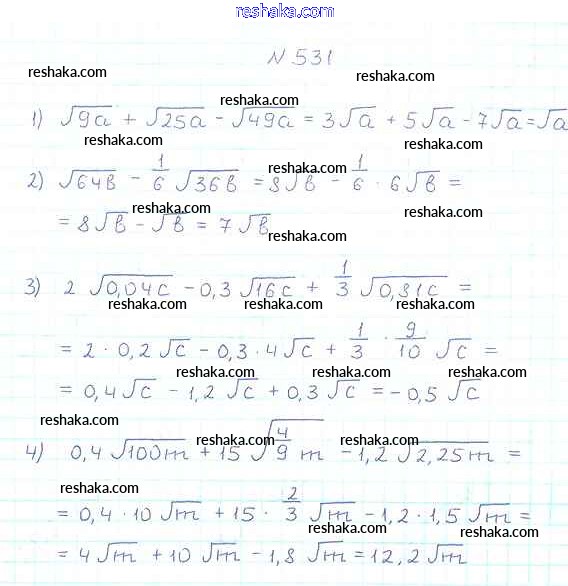 reshaka.com
N 531
reshaka.com
reshaka.com
reshaka.com
1) √9a + √25a - √49a = 3√a + 5√a - 7√a = √a
reshaka.com
reshaka.com
reshaka.com
2) √64в - 1/6 √36в = 8√в - 1/6 · 6√в =
reshaka.com
reshaka.com
= 8√в - √в = 7√в
reshaka.com
3) 2√0,04c - 0,3√16c + 1/3 √0,81c =
reshaka.com
reshaka.com
reshaka.com
= 2 · 0,2√c - 0,3 · 4√c + 1/3 · 9/10 √c =
reshaka.com
reshaka.com
reshaka.com
= 0,4√c - 1,2√c + 0,3√c = -0,5√c
reshaka.com
reshaka.com
reshaka.com
4) 0,4√100m + 15√4/9 m - 1,2√2,25m =
reshaka.com
= 0,4 · 10√m + 15 · 2/3 √m - 1,2 · 1,5√m =
reshaka.com
reshaka.com
= 4√m + 10√m - 1,8√m = 12,2√m
reshaka.com
reshaka.com